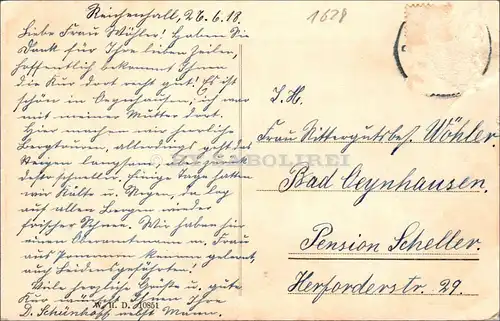 Reichenhall, 26.6.18.
Liebe Frau Wöhler! Haben Sie
Dank für Ihre lieben Zeilen,
hoffentlich bekommt Ihnen
die Kur dort recht gut! Es ist
schön in Oeynhausen, ich war
mit meiner Mutter dort.
Hier machen wir herrliche
Bergtouren, allerdings geht das
Steigen langsam, die zurück
desto schneller. Einige Tage hatten
wir Kälte u. Regen, da lag
auf allen Bergen wieder
frischer Schnee. Wir haben hier
einen Oberamtmann m. Frau
aus Pommern kennen gelernt,
auch Leidensgefährten!
Viele herzliche Grüße u. gute
Kur wünscht Ihnen Ihre
D. Schünhoff nebst Mann.
W. H. D. 10851
1628
I. H.
Frau Rittergutsbes. Wöhler
Bad Oeynhausen.
Pension Scheller.
Herforderstr. 29.